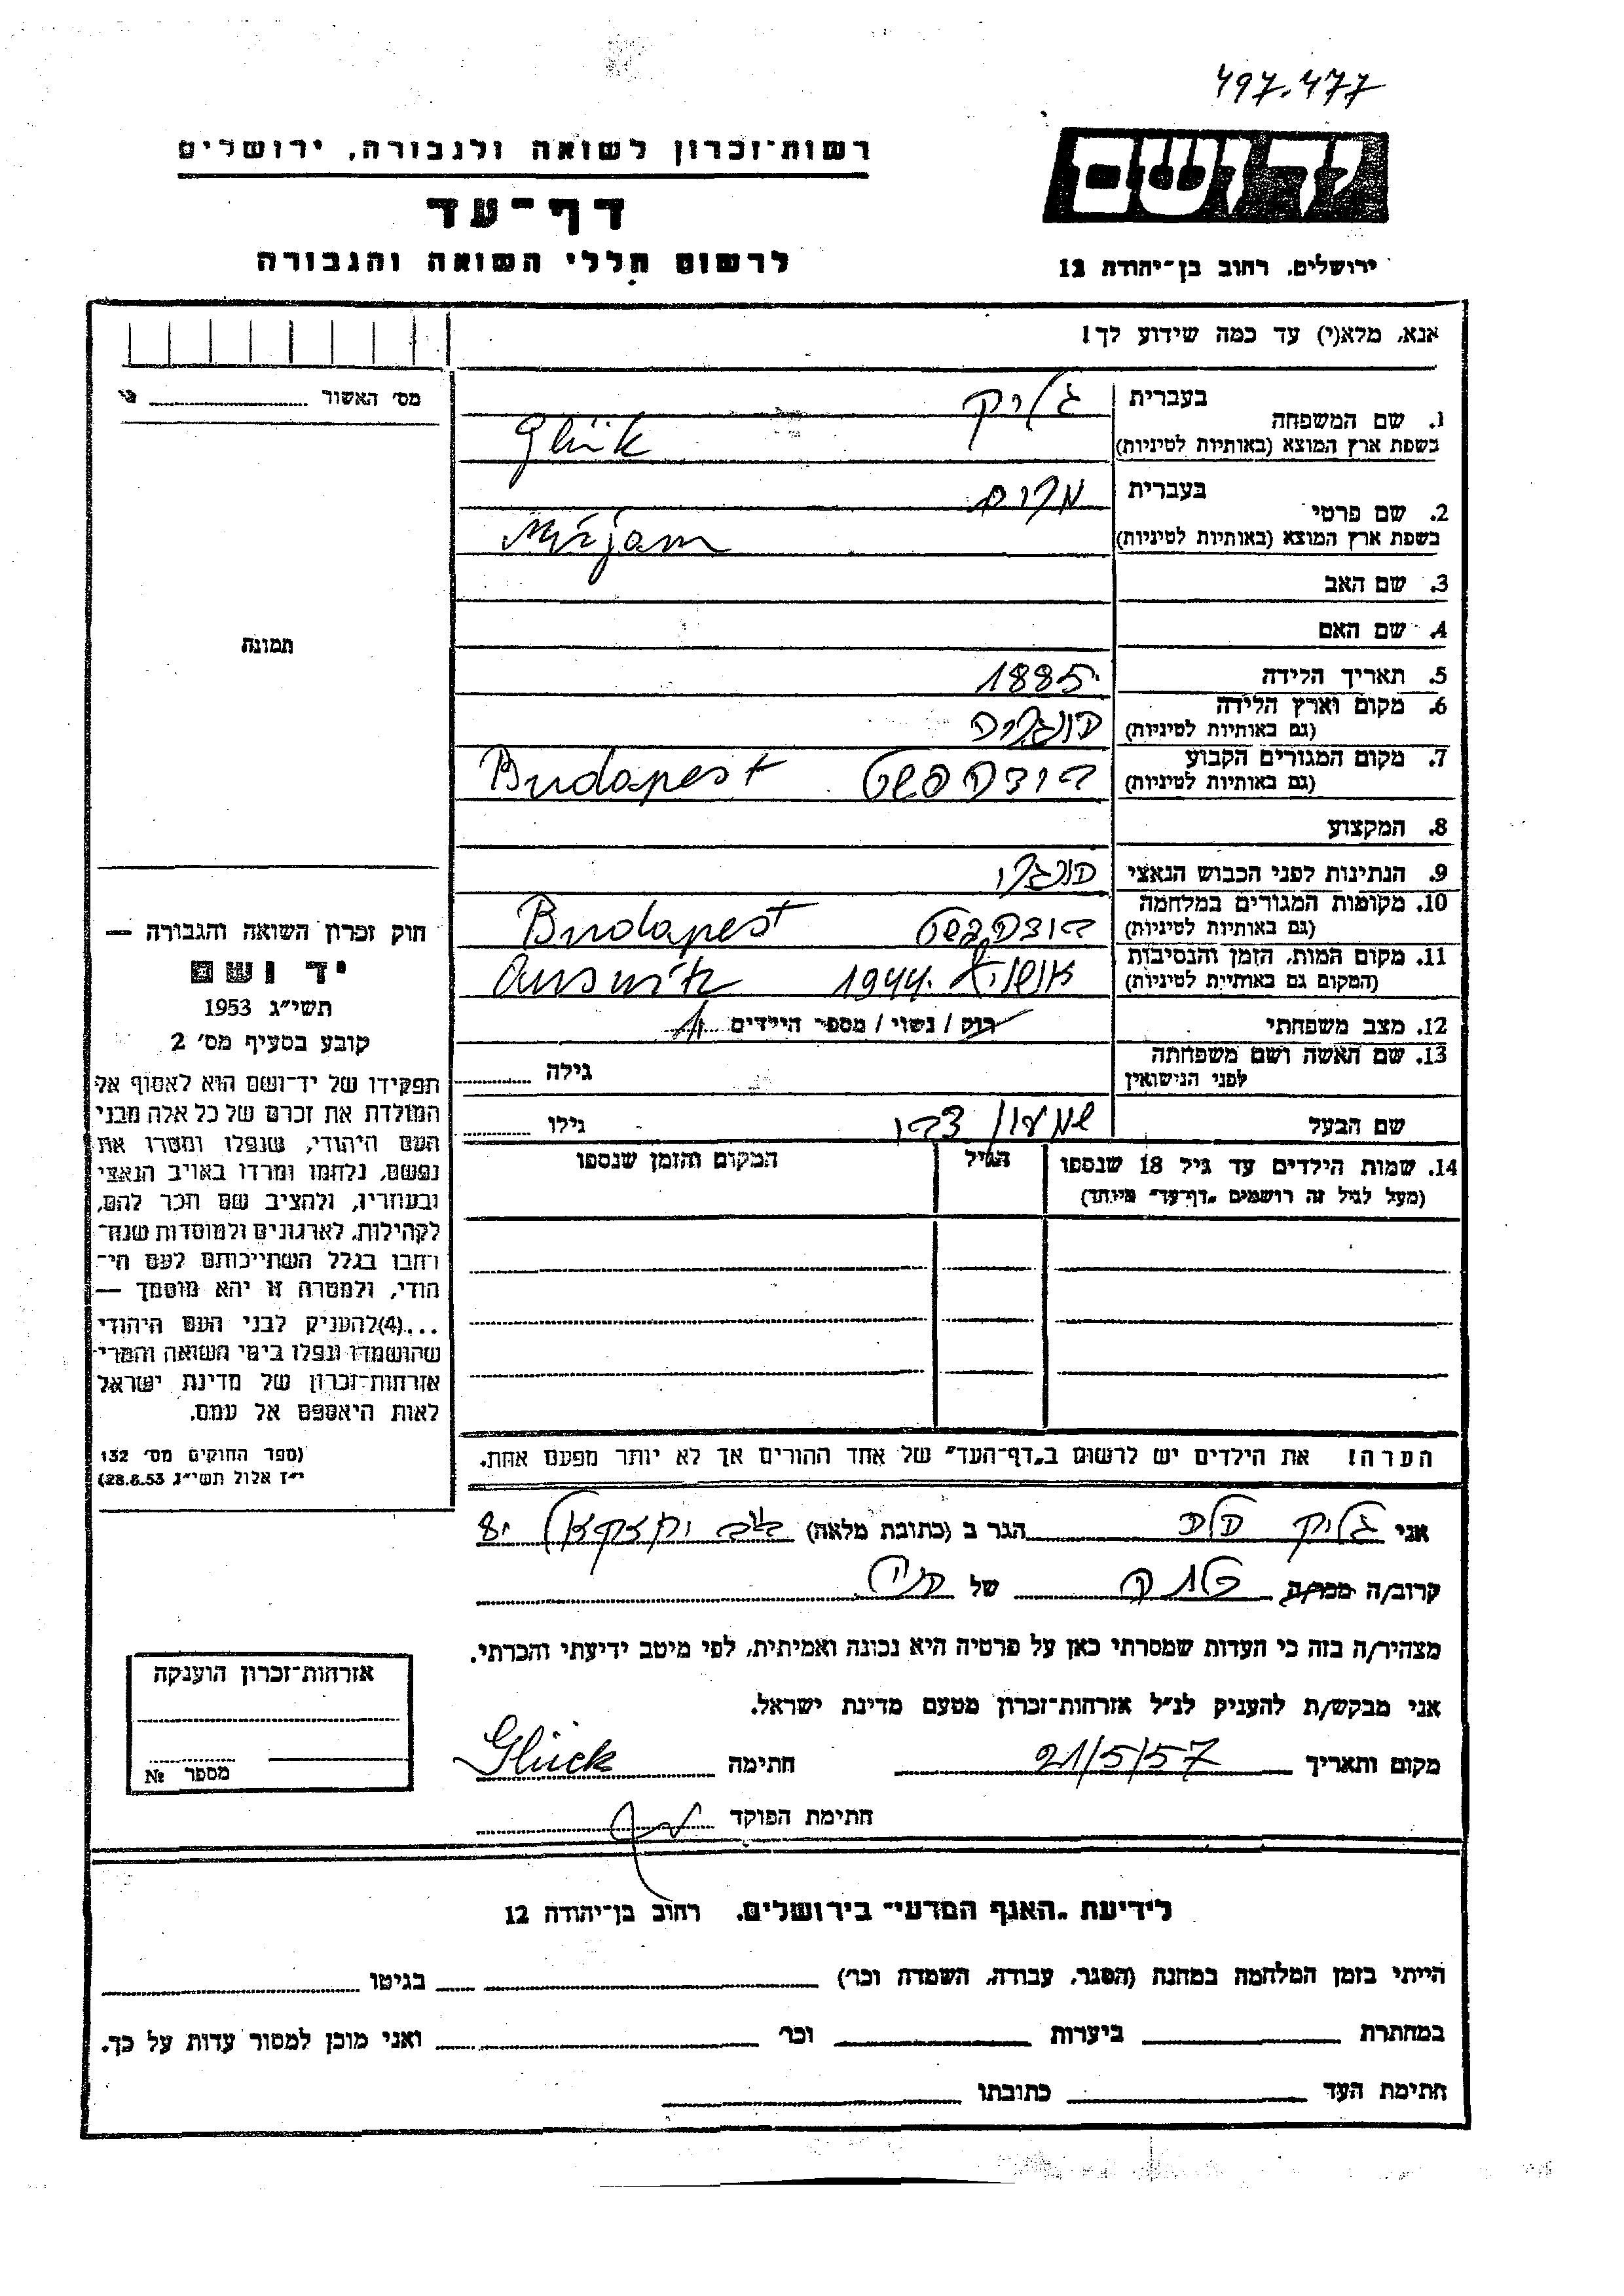 497.477
רשות־זכרון לשואה ולגבורה, ירושלים
יד ושם
דף־עד
לרשום חללי השואה והגבורה
ירושלים, רחוב בן־יהודה 12
אנא, מלא(י) עד כמה שידוע לך!
מס' האשור
1. שם המשפחה
בעברית גליק
בשפת ארץ המוצא (באותיות לטיניות) Glük
2. שם פרטי
בעברית מרים
בשפת ארץ המוצא (באותיות לטיניות) Mirjam
3. שם האב
4. שם האם
תמונה
5. תאריך הלידה 1885
6. מקום וארץ הלידה
(גם באותיות לטיניות) הונגריה
7. מקום המגורים הקבוע
(גם באותיות לטיניות) בודפשט Budapest
8. המקצוע
9. הנתינות לפני הכבוש הנאצי הונגרי
10. מקומות המגורים במלחמה
(גם באותיות לטיניות) בודפשט Budapest
11. מקום המות, הזמן והנסיבות
(המקום גם באותיות לטיניות) 1944 Auswitz
12. מצב משפחתי רוק / נשוי / מספר הילדים
13. שם האשה ושם משפחתה
לפני הנישואין גילה
שם הבעל שמעון צבי גילו
14. שמות הילדים עד גיל 18 שנספו הגיל המקום והזמן שנספו
(מעל לגיל זה רושמים "דף־עד" מיוחד)
הערה! את הילדים יש לרשום ב"דף־העד" של אחד ההורים אך לא יותר מפעם אחת.
חוק זכרון השואה והגבורה —
יד ושם
תשי"ג 1953
קובע בסעיף מס' 2
תפקידו של יד־ושם הוא לאסוף אל
המולדת את זכרם של כל אלה מבני
העם היהודי, שנפלו ומסרו את
נפשם, נלחמו ומרדו באויב הנאצי
ובעוזריו, ולהציב שם וזכר להם,
לקהילות, לארגונים ולמוסדות שנח־
רבו בגלל השתייכותם לעם הי־
הודי, ולמטרה זו יהא מוסמך —
...(4)להעניק לבני העם היהודי
שהושמדו ונפלו בימי השואה והמרי
אזרחות־זכרון של מדינת ישראל
לאות היאספם אל עמם.
(ספר החוקים מס' 132
י"ז אלול תשי"ג 28.8.53)
אני גליק הגר ב (כתובת מלאה)
קרוב/ה מכר/ה של
מצהיר/ה בזה כי העדות שמסרתי כאן על פרטיה היא נכונה ואמיתית, לפי מיטב ידיעתי והכרתי.
אני מבקש/ת להעניק לנ"ל אזרחות־זכרון מטעם מדינת ישראל.
מקום ותאריך 21/5/57 חתימה Glück
חתימת הפוקד
אזרחות־זכרון הוענקה
מספר №
לידיעת "האגף המדעי" בירושלים, רחוב בן־יהודה 12
הייתי בזמן המלחמה במחנה (הסגר, עבודה, השמדה וכר') בגיטו
במחתרת ביערות וכר' ואני מוכן למסור עדות על כך.
חתימת העד כתובתו